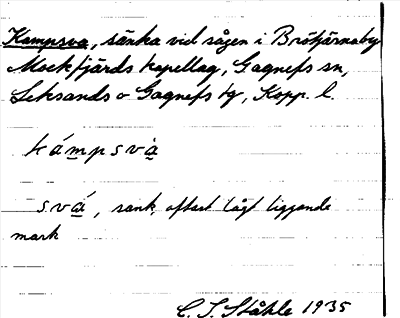 Kampsva, sänka vid sågen i Brötjärnaby
Mockfjärds kapellag, Gagnefs sn,
Leksands o Gagnefs tg, Kopp. l.
kámpsvà
svá, sank, oftast lågt liggande
mark
C. I. Ståhle 1935